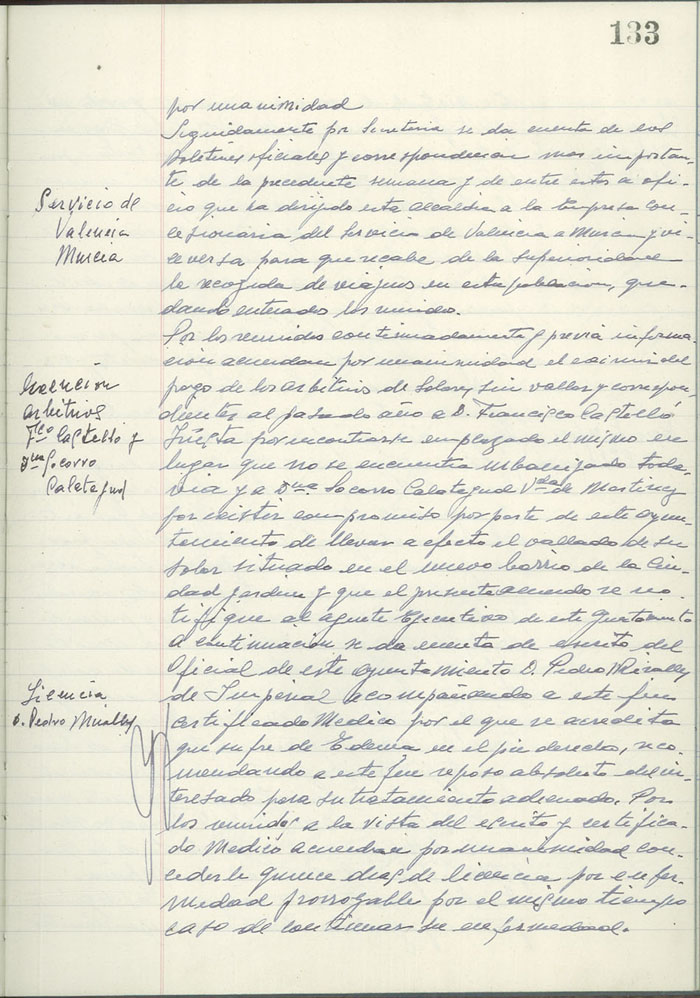 133
por unanimidad
Seguidamente por Secretaria se da cuenta de los
Boletines oficiales y correspondencia mas importan-
te de la precedente semana y de entre estos a ofi-
Servicio de
Valencia
Murcia
cio que ha dirijido esta Alcaldia a la Empresa con-
cesionaria del Servicio de Valencia a Murcia y vi-
ceversa para que recabe de la superioridad
la recogida de viajeros en esta poblacion, que-
dando enterados los reunidos.
Por los reunidos continuadamente y previa informa-
cion acuerdan por unanimidad el eximir del
Exencion
arbitrios
Fco Castelló y
Dña Socorro
Calatayud
pago de los arbitrios de Solares sin vallar y correspon-
dientes al pasado año a D. Francisco Castelló
por encontrarse emplazado el mismo en
lugar que no se encuentra urbanizado toda-
via y a Dña Socorro Calatayud Vda de Martinez
por existir compromiso por parte de este ayun-
tamiento de llevar a efecto el vallado de su
Solar situado en el nuevo barrio de la Ciu-
dad jardin y que el presente acuerdo se no-
tifique al agente Ejecutivo de este Ayuntamiento
A continuacion se da cuenta de escrito del
Oficial de este ayuntamiento D. Pedro Miralles
Licencia
D. Pedro Miralles
de Imperial acompañando a este fin
certificado Medico por el que se acredita
que sufre de Edema en el pie derecho, reco-
mendando a este fin reposo absoluto del in-
teresado para su tratamiento adecuado. Por
los reunidos a la vista del escrito y certifica-
do Medico acuerdan por unanimidad con-
cederle quince dias de licencia por enfer-
medad prorrogable por el mismo tiempo
caso de continuar su enfermedad.